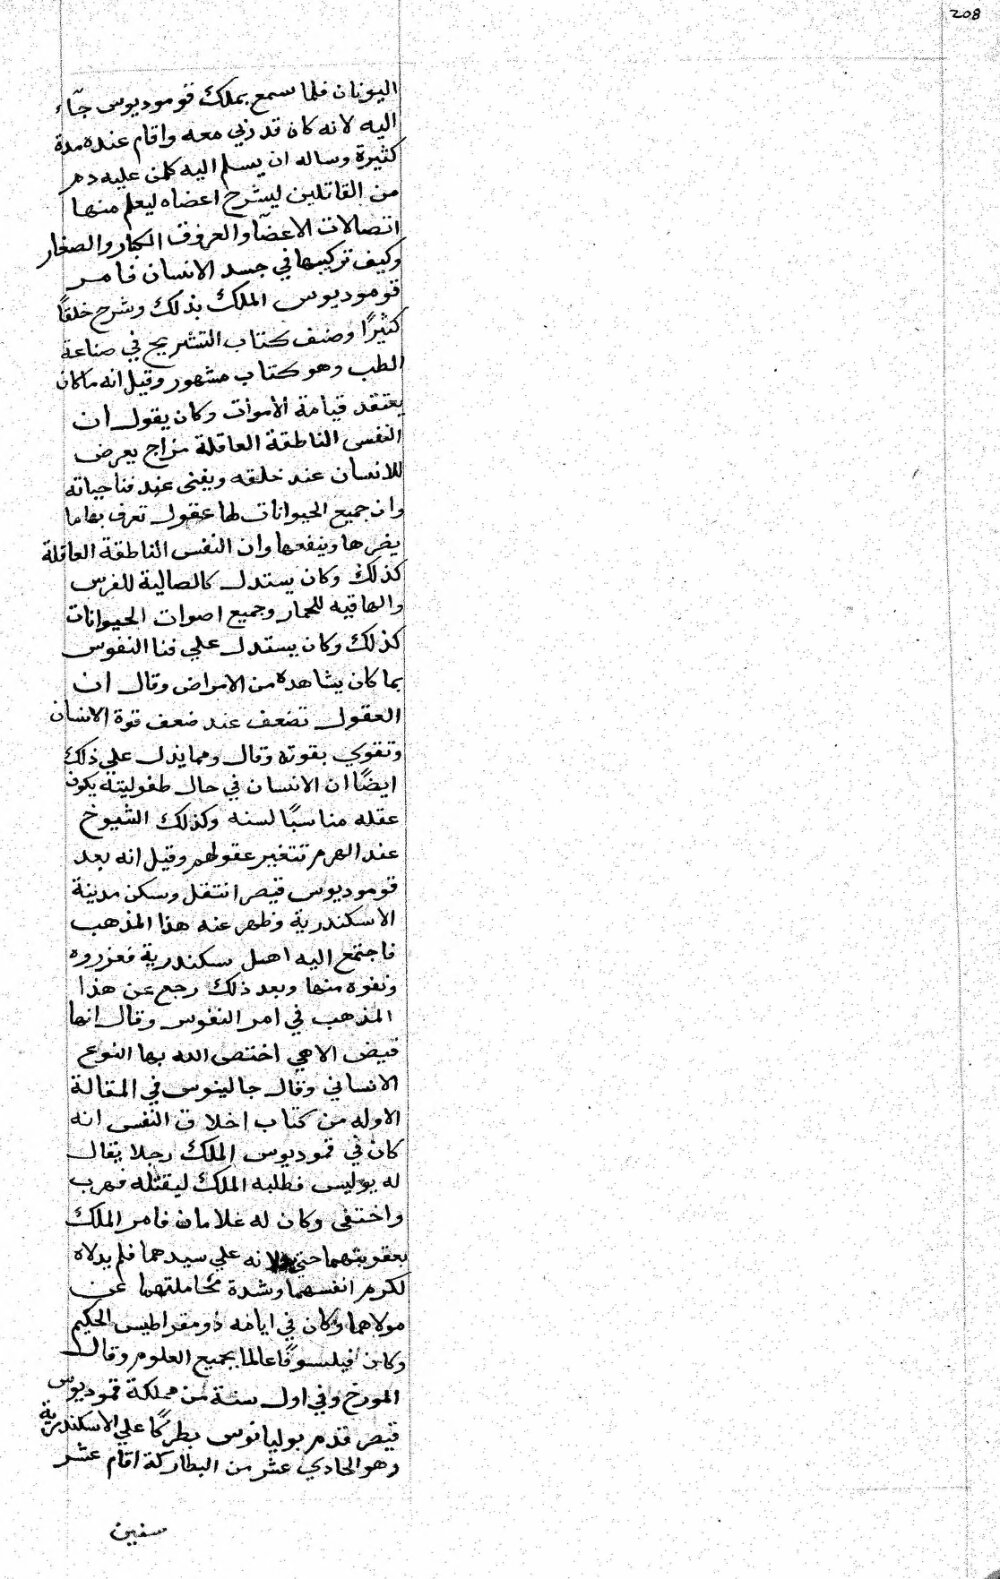 208
اليونان فلما سمع بملك قوموديوس جآء
اليه لانه كان قد ربي معه واقام عنده مدة
كثيرة وساله ان يسلم اليه كلمن عليه دم
من القاتلين ليشرح اعضاه ليعلم منها
اتصالات الاعضآ والعروق الكبار والصغار
وكيف تركيبها في جسد الانسان فامر
قوموديوس الملك بذلك وشرح خلقًا
كثيرًا وصنف كتاب التشريح في صناعة
الطب وهو كتاب مشهور وقيل انه ما كان
يعتقد قيامة الاموات وكان يقول ان
النفس الناطقة العاقلة مزاج يعرض
للانسان عند خلقه ويفنى عند فنا حياته
وان جميع الحيوانات لها عقول تعرف بها ما
يضرها وينفعها وان النفس الناطقة العاقلة
كذلك وكان يستدل كالصالية للفرس
والهاقيه للحمار وجميع اصوات الحيوانات
كذلك وكان يستدل علي فنا النفوس
بما كان يشاهده من الامراض وقال ان
العقول تضعف عند ضعف قوة الانسان
وتقوي بقوته وقال ومما يدل علي ذلك
ايضًا ان الانسان في حال طفوليته يكون
عقله مناسبًا لسنه وكذلك الشيوخ
عند الهرم تتغير عقولهم وقيل انه بعد
قوموديوس قيصر انتقل وسكن مدينة
الاسكندرية وظهر عنه هذا المذهب
فاجتمع اليه اهل سكندرية فعزروه
ونفوه منها وبعد ذلك رجع عن هذا
المذهب في امر النفوس وقال انها
فيض الاهي اختص الله بها النوع
الانساني وقال جالينوس في المقالة
الاوله من كتاب اخلاق النفس انه
كان في قموديوس الملك رجلا يقال
له بوليس فطلبه الملك ليقتله فهرب
واختفى وكان له غلامان فامر الملك
بعقوبتهما حتي علي سيدهما فلم يدلاه
لكرم انفسهما وشدة محاملتهما عن
مولاهما وكان في ايامه ذومقراطيس الحكيم
وكان فيلسوفًا عالما بجميع العلوم وقال
المورخ وفي اول سنة من مملكة قموديوس
قيصر قدم بوليانوس بطركًا علي الاسكندرية
وهو الحادي عشر من البطاركة اقام عشر
سنين